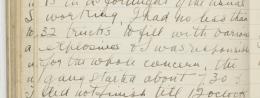 is in a fortnight of the usual
working, I had no less than
32 trucks to fill with various
explosives & I was responsible
for the whole concern, the
gang started about 7.30 &
did not finish till 12 oclock